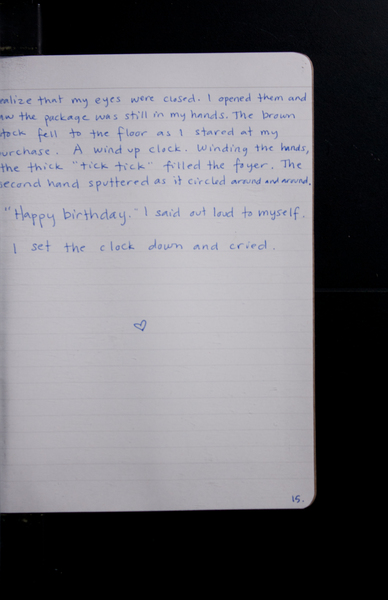 ealize that my eyes were closed. I opened them and
aw the package was still in my hands. The brown
tock fell to the floor as I stared at my
urchase. A wind up clock. Winding the hands,
the thick "tick tick" filled the foyer. The
second hand sputtered as it circled around and around.
"Happy birthday." I said out loud to myself.
I set the clock down and cried.
15.